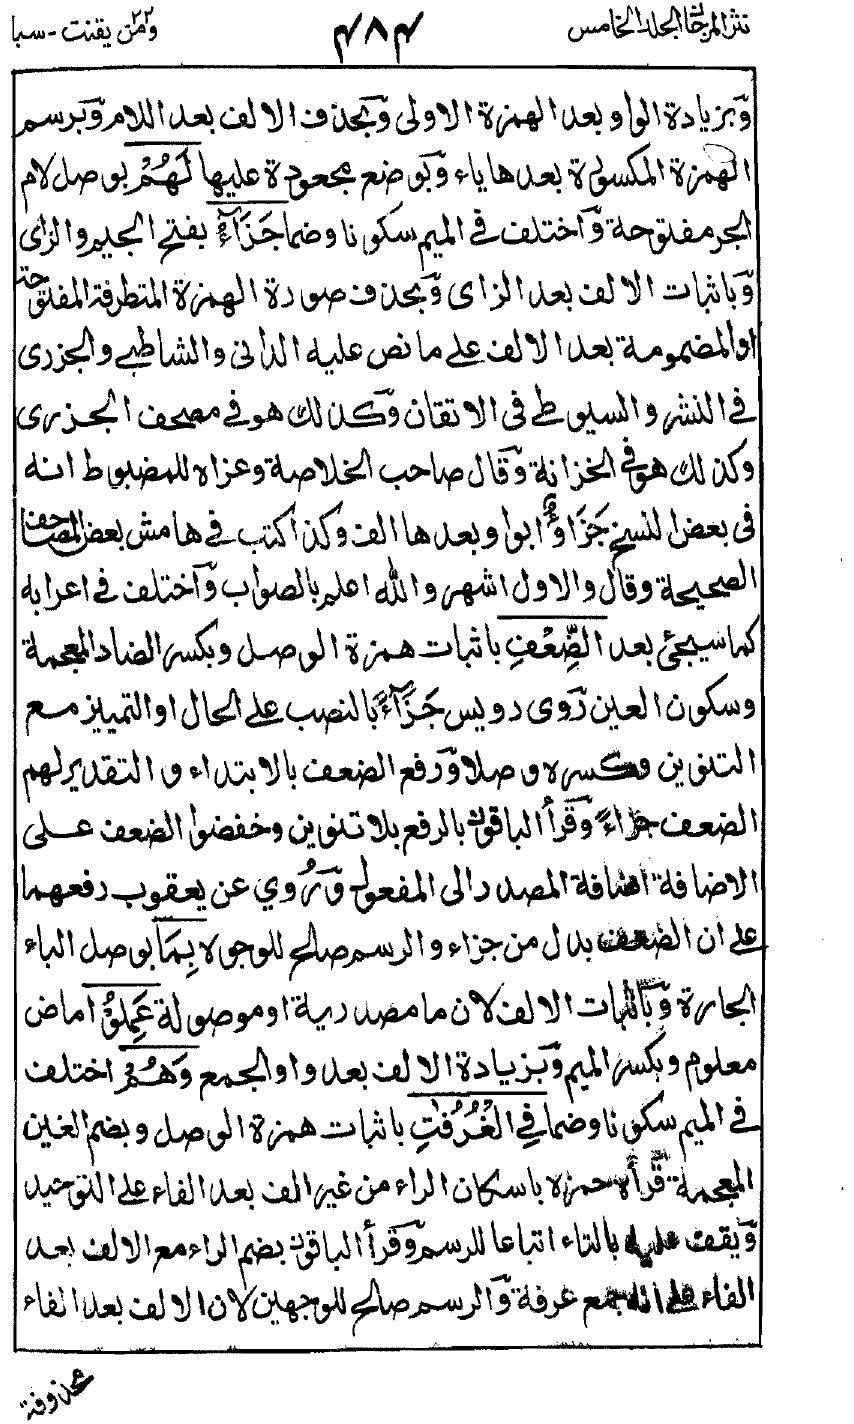 نثر المرجان المجلد الخامس
۴۸۴
ومن يقنت ٢٢ - سبا
وبزيادة الواو بعد الهمزة الاولى وبحذف الالف بعد اللام وبرسم
الهمزة المكسورة بعدها ياء وبوضع مجعودة عليها لَهُمْ بوصل لام
الجر مفتوحة واختلف في الميم سكونا وضما جَزَآءُ بفتح الجيم والزاى
وباثبات الالف بعد الزاى وبحذف صورة الهمزة المتطرفة المفتوحة
او المضمومة بعد الالف على ما نص عليه الدانى والشاطبي والجزرى
في النشر والسيوطى في الاتقان وكذلك هو في مصحف الجزرى
وكذلك هو في الخزانة وقال صاحب الخلاصة وعزاه للمضبوط انه
في بعض النسخ جَزَاؤُا بواو بعدها الف وكذا كتب في هامش بعض المصاحف
الصحيحة وقال والاول اشهر والله اعلم بالصواب واختلف في اعرابه
كما سيجئ بعد الضِّعْفِ باثبات همزة الوصل وبكسر الضاد المعجمة
وسكون العين رَوى رويس جَزَآءً بالنصب على الحال او التمييز مع
التنوين وكسره وصلا ورفع الضعف بالابتداء و التقدير لهم
الضعف جزاءً وقرأ الباقون بالرفع بلا تنوين وخفضوا الضعف على
الاضافة اضافة المصدر الى المفعول ورُوي عن يعقوب رفعهما
على ان الضعف بدل من جزاء والرسم صالح للوجوه بِمَا بوصل الباء
الجارة وباثبات الالف لان ما مصدرية او موصولة عَمِلُوْا ماض
معلوم وبكسر الميم وبزيادة الالف بعد واو الجمع وَهُمْ اختلف
في الميم سكونا وضما فِي الْغُرُفٰتِ باثبات همزة الوصل وبضم الغين
المعجمة قرأه حمزه باسكان الراء من غير الف بعد الفاء على التوحيد
ويقف عليه بالتاء اتباعا للرسم وقرأ الباقون بضم الراء مع الالف بعد
الفاء على انه جمع غرفة والرسم صالح للوجهين لان الالف بعد الفاء
محذوفة